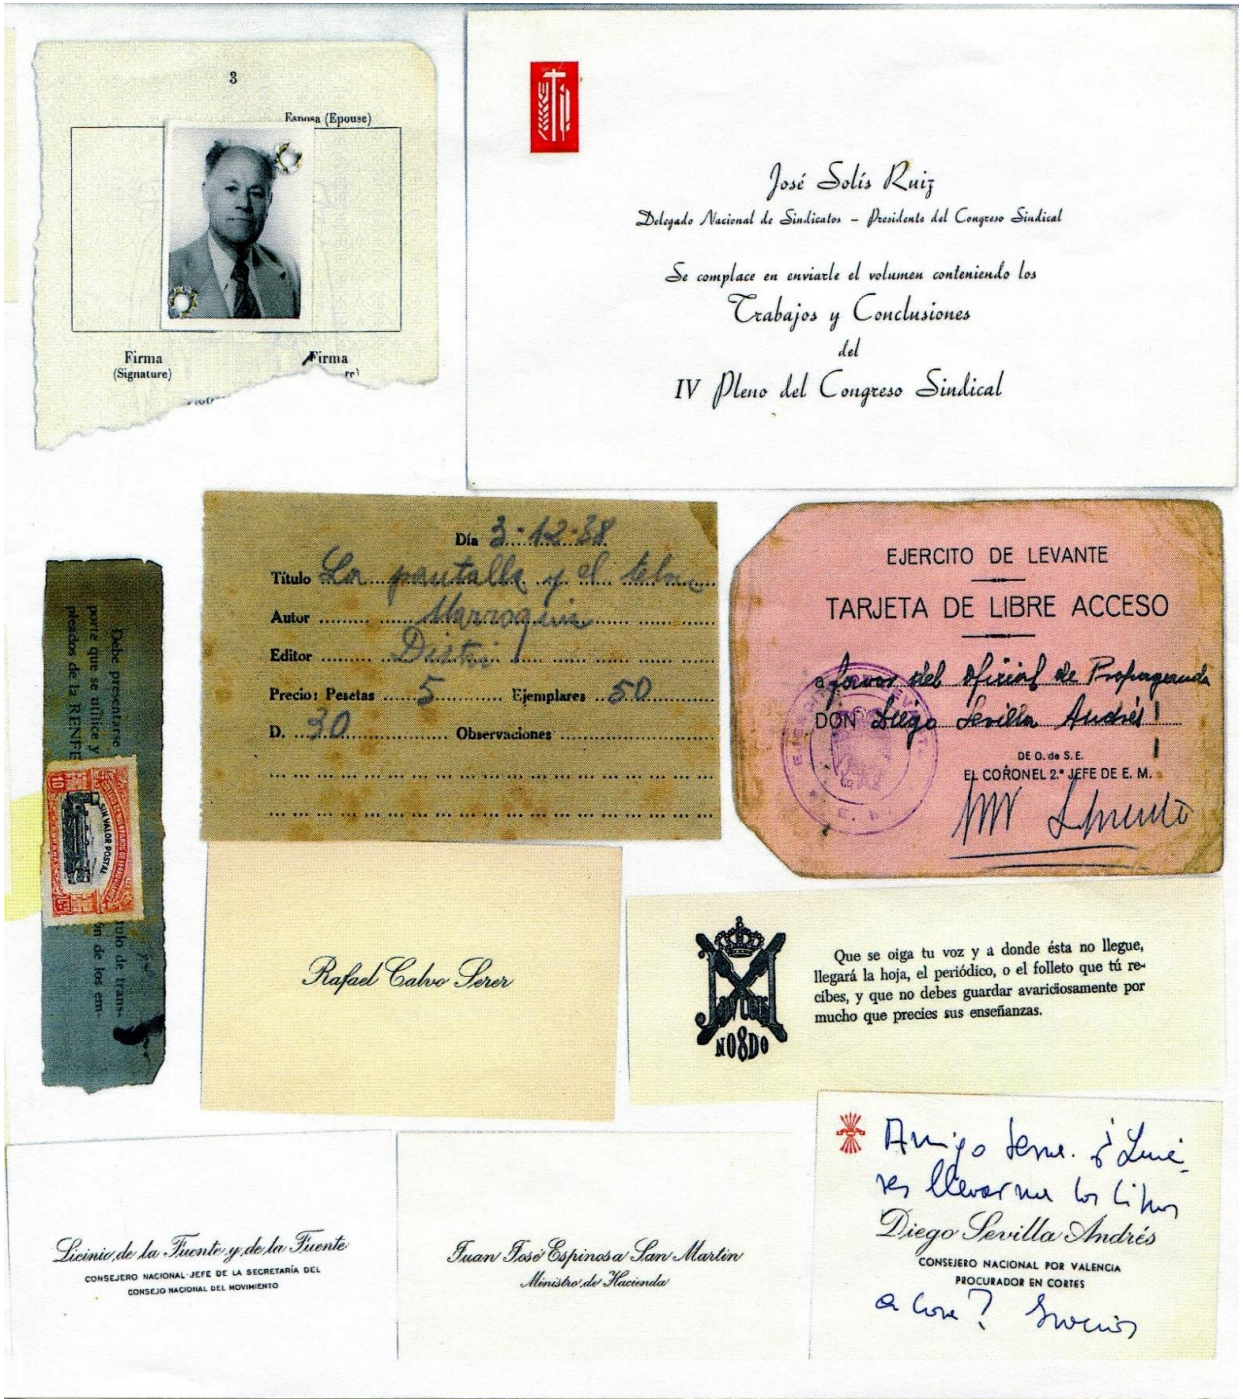 3
Esposa (Epouse)
Firma
(Signature)
Firma
re)
José Solís Ruiz
Delegado Nacional de Sindicatos – Presidente del Congreso Sindical
Se complace en enviarle el volumen conteniendo los
Trabajos y Conclusiones
del
IV Pleno del Congreso Sindical
Día 3-12-38
Título La pantalla y el telon
Autor Marroquin
Editor
Precio: Pesetas 5 Ejemplares 50
D. 30 Observaciones
EJERCITO DE LEVANTE
TARJETA DE LIBRE ACCESO
a favor del Oficial de Propaganda
DON Diego Sevilla Andrés
DE O. de S. E.
EL CORONEL 2.º JEFE DE E. M.
Debe presentarse
porte que se utilice y
pleados de la RENFE
tulo de trans-
ón de los em-
10
SIN VALOR POSTAL
Rafael Calvo Serer
NO8DO
Que se oiga tu voz y a donde ésta no llegue,
llegará la hoja, el periódico, o el folleto que tú re-
cibes, y que no debes guardar avariciosamente por
mucho que precies sus enseñanzas.
Licinio de la Fuente y de la Fuente
CONSEJERO NACIONAL-JEFE DE LA SECRETARÍA DEL
CONSEJO NACIONAL DEL MOVIMIENTO
Juan José Espinosa San Martín
Ministro de Hacienda
Amigo ¿Quie-
res llevarme los libros
Diego Sevilla Andrés
CONSEJERO NACIONAL POR VALENCIA
PROCURADOR EN CORTES
a casa? Gracias